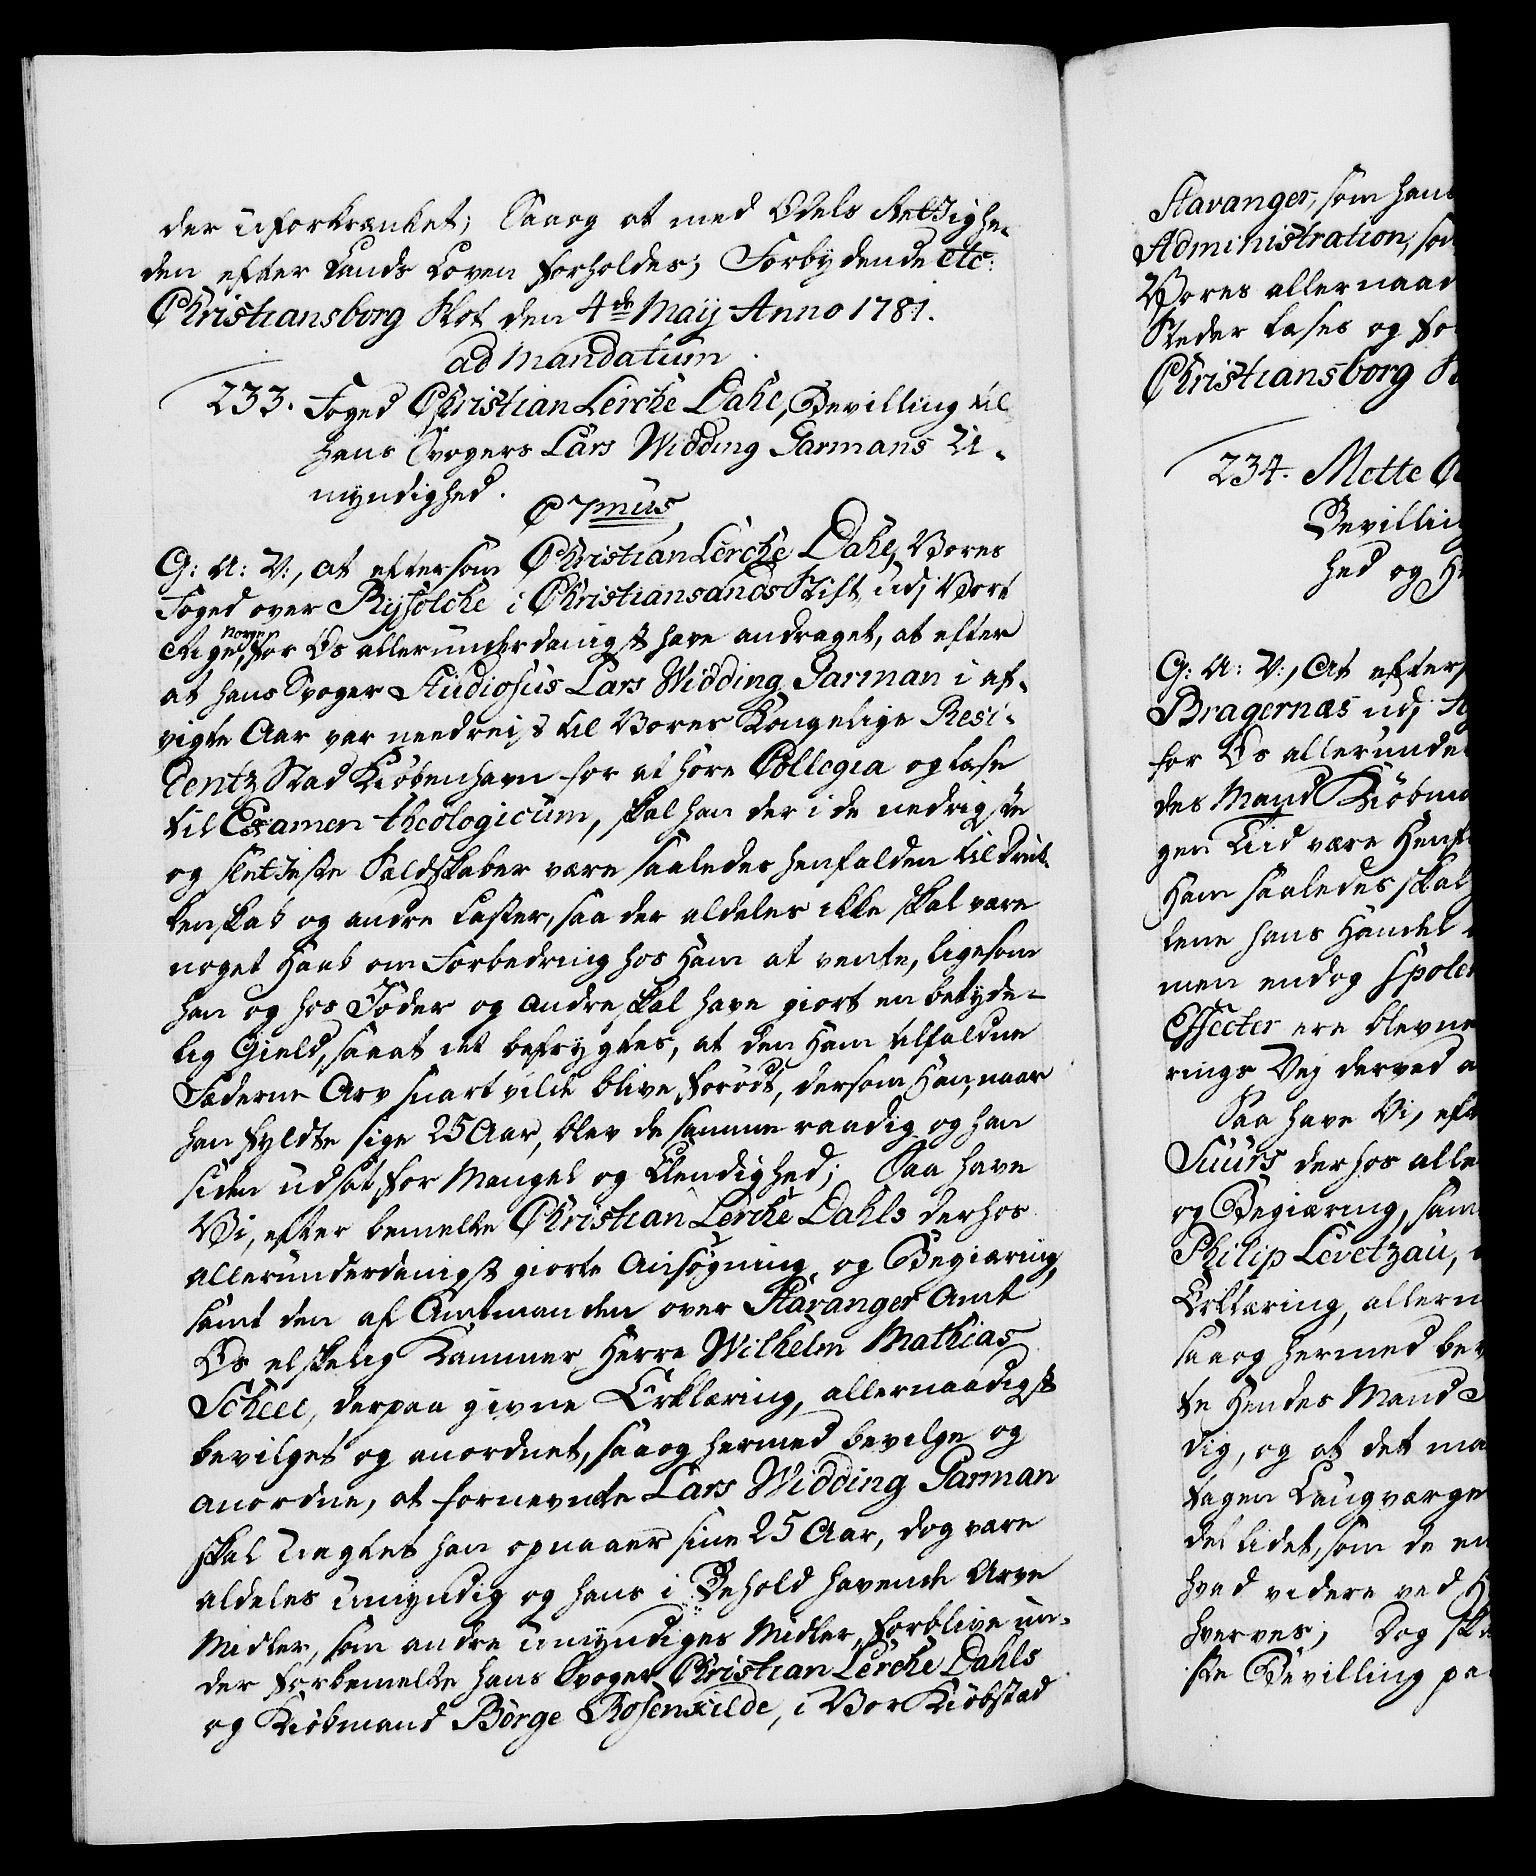 der uforkrænket; Saaog at med Odels Rettighe-
den efter Lands Loven forholdes; Forbydende etc:
Christiansborg Slot den 4de Maij Anno 1781.
ad mandatum
233. Foged Christian Lerche Dahl, Bevilling til
hans Svogers Lars Widding Garmans U-
myndighed.
C 7mus
G: A: V:, at eftersom Christian Lerche Dahl, Vores
Foged over Ryfölcke i Christiansands Stift udj Vort
Rige Norge, for Os allerunderdanigst have andraget, at efter
at hans Svoger Studiosus Lars Widding Garman i af-
vigte Aar var needreist til Vores Kongelige Resi-
dentz Stad Kiöbenhavn for at höre Collegia og læse
til Examen theologicum, skal han der i de nedrigste
og slætteste Sældskaber være saaledes henfalden til Druk-
kenskab og andre Laster, saa der aldeles ikke skal være
noget Haab om Forbedring hos Ham at vente, ligesom
han og hos Jöder og andre skal have giort en betyde-
lig Gield, saaat det befrygtes, at den Ham tilfaldne
Fæderne Arv snart vilde blive forödt, dersom Han, naar
han fyldte sine 25 Aar, blev de samme raadig og han
siden udsat for Mangel og Elendighed; Saa have
Vi, efter bemelte Christian Lerche Dahls derhos
allerunderdanigst giorte Ansögning og Begiæring,
samt den af Amtmanden over Stavanger Amt
Os elskelig Kammer Herre Wilhelm Mathias
Scheel, derpaa givne Erklæring, allernaadigst
bevilget og anordnet, saaog hermed bevilge og
anordne, at fornevnte Lars Widding Garman
skal uagtet han opnaaer sine 25 Aar, dog være
aldeles umyndig og hans i Behold havende Arve
Midler, som andre umyndiges Midler, forblive un-
der forbemelte hans Svoger Christian Lerche Dahls
og Kiöbmand Börge Rosenkilde, i Vor Kiöbstad
Stavanger, som hans
Administration, som
Vores allernaad
Steder læses og for
Christiansborg Sl
234. Mette
Bevilling
hed og H
G: A: V:, At efters
Bragernæs udj
for Os allerunde
des Mand Kiöbma
gen Tid være Henfa
Ham saaledes skal
lene hans Handel
men endog spoler
Effecter ere blevne
rings Vej derved a
Saa have Vi, eft
Suurs derhos alle
og Begiæring, sam
Philip Levetzau,
Erklæring, allern
saaog hermed bev
te Hendes Mand
dig, og at det ma
tagen Laugværge
del lidet, som de en
hvad videre ved H
hverves; Dog sk
ste Bevilling pa